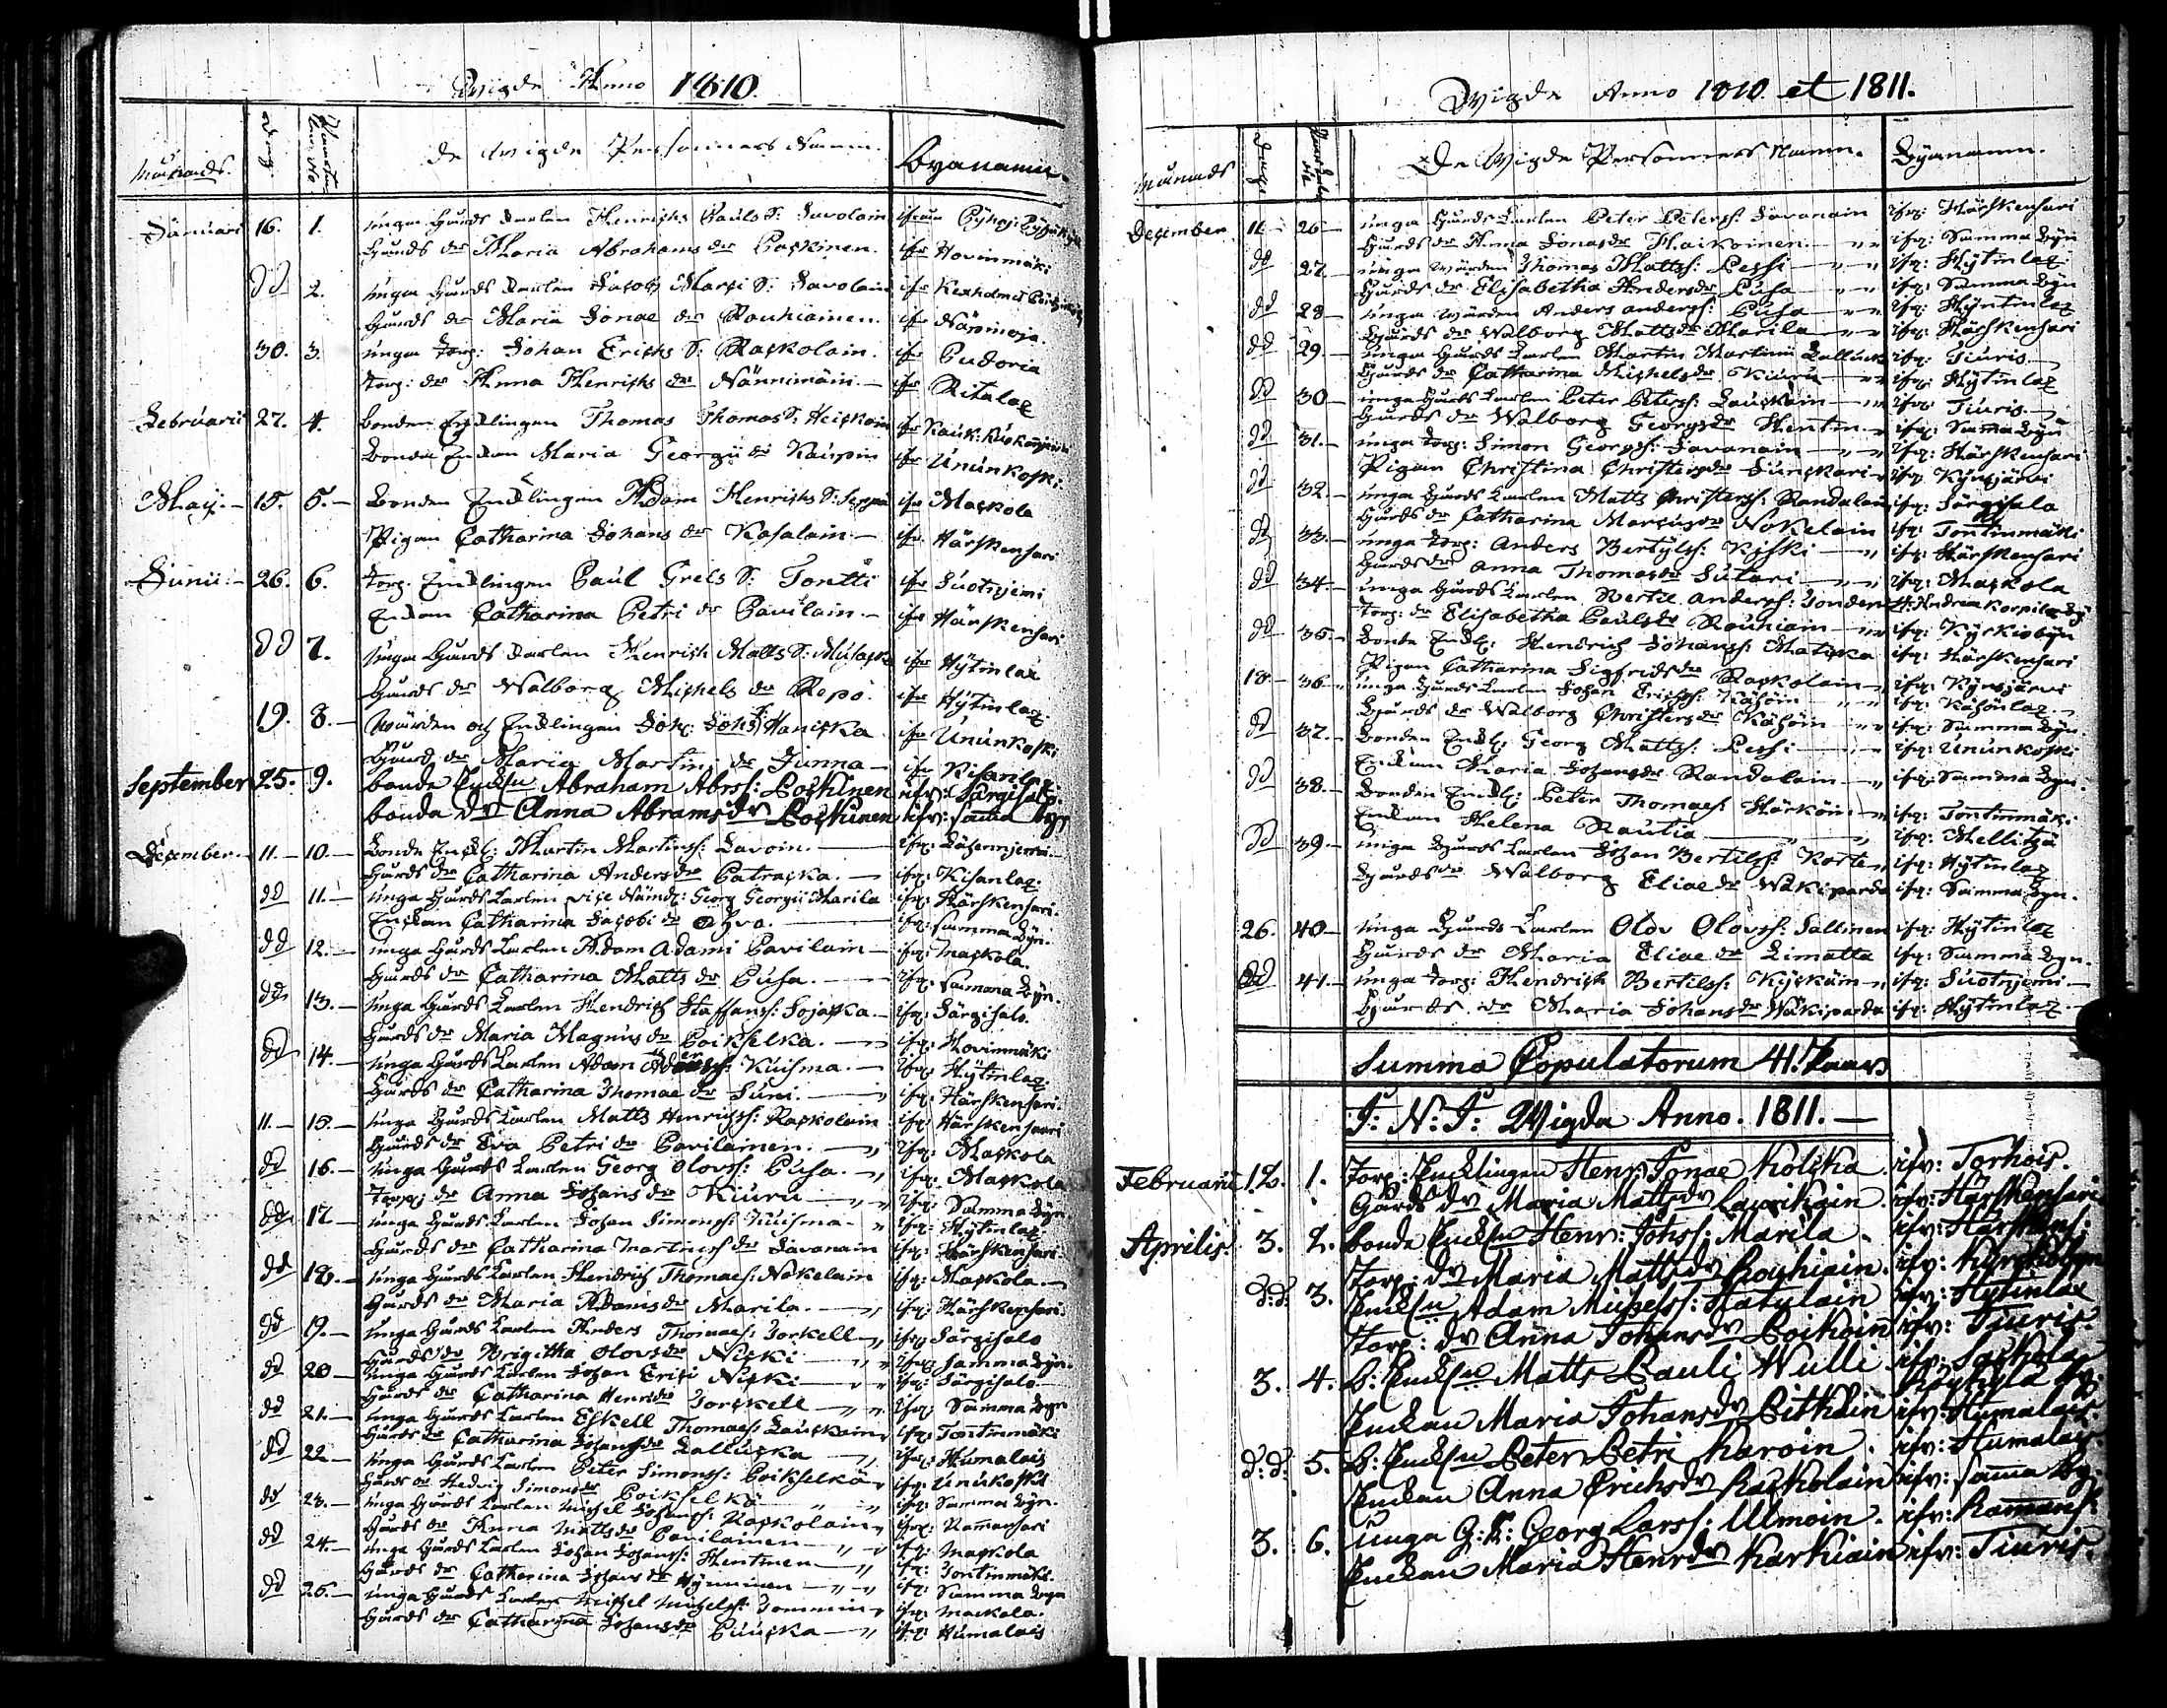 Wigde Anno 1810.
Månads. Dag No De Wigde Personers Namn. Byanamn.
Januarii 16. 1. unga Gårds Karlen Henrichs Pauls S: Savolain ifrån
Gårds dr Maria Abrahams dr Poskinen. ifr Hovinmäki
dd 2. unga Gårds Karlen Jacob S: Savolain ifr Kexholms
Gårds dr Maria Jonae dr Rouhiainen. ifr
30. 3. unga Torp: Johan Erichs S: Raskolain. ifr Pudoria
Torp: dr Anna Henrichs dr ifr Ritalax
Februarii 27. 4. Bonden Encklingen Thomas Thomas S: Heiskain ifr
Bonde Enckan Maria Georgii dr ifr Ununkoski
Maij. 15. 5. Bonden Encklingen Adam Henrichs S: Seppä ifr Maskola
Pigan Catharina Johans dr Kasalain ifr Härskensari
Junii. 26. 6. Torp. Encklingen Paul Grels S: Tontti ifr Suotnjemi
Enckan Catharina Petri dr Pavilain. ifr Härskensari
dd 7. unga Gårds Karlen Henrich Matts S: ifr Hytinlax
Gårds dr Walborg Michels dr Repo. ifr Hytinlax
19. 8. Wärden och Encklingen Joh: Johs: Haniska ifr Ununkoski
Gård dr Maria Martin dr Junna ifr Kisanlax
September 25. 9. bonde Enckln Abraham Abrss: Poskinen ifr: Särgisalo
bonde dr Anna Abramsdr Poskinen ifr: Samma by
December. 11. 10. Bonde Enckl: Martin Martinss: Savoin. ifr:
Gårds dr Catharina Andersdr Patraska. ifr: Kisanlax
dd 11. unga Gårds Karlen vice Nämd: Georg Georgii Marila ifr: Härskensari.
Enckan Catharina Jacobi dr ifr: Samma Byn.
dd 12. unga Gårds Karlen Adam Adami Pavilain ifr: Maskola.
Gårds dr Catharina Matts dr Pusa. ifr: Samma Byn.
dd 13. unga Gårds Karlen Hendrich Staffanss: Sojaska. ifr: Särgisalo.
Gårds dr Maria Magnus dr Poikselka. ifr: Hovinmäki
dd 14. unga Gårds Karlen Adam Kuisma. ifr: Hytinlax.
Gårds dr Catharina Thomae dr Suni. ifr: Härskensari.
11. 15. unga Gårds Karlen Matts Henrichss: Raskolain ifr: Härskensari
Gårds dr Eva Petri dr Pavilainen. ifr: Maskola
dd 16. unga Gårds Karlen Georg Olovss: Pusa. ifr: Maskola
Torp: dr Anna Johans dr Kiuru ifr: Samma Byn.
dd 17. unga Gårds Karlen Johan Simonss: Kuisma ifr: Hytinlax
Gårds dr Catharina Martinss dr Savanain ifr: Härskensari.
dd 18. unga Gårds Karlen Hendrich Thomaes: Nokelain ifr: Maskola.
Gårds dr Maria Adamsdr Marila. ifr: Härskensari.
dd 19. unga Gårds Karlen Anders Thomaes: Torkell ifr: Särgisalo
Gårds dr Brigitha Olovsdr Niski ifr: Samma Byn.
dd 20 unga Gårds Karlen Johan Erici Niski ifr: Särgisalo
Gårds dr Catharina Henrsdr Torckell ifr: Samma Byn
dd 21. unga Gårds Karlen Eskell Thomaes: Lauskain ifr: Tontinmäki
Gårds dr Catharina Johansdr Kalluska ifr: Humalais
dd 22. unga Gårds Karlen Peter Simonss: Poikselkä ifr: Ununkoski
Gårds dr Hedvig Simonsdr Poikselkä ifr: Samma Byn.
dd 23. unga Gårds Karlen Michel Johanss: Raskolain ifr: Ramansari
Gårds dr Anna Mattsdr Pavilainen ifr: Maskola
dd 24. unga Gårds Karlen Johan Johanss: Hentinen ifr: Tontinmäki.
Gårds dr Catharina Johans dr Hynninen ifr: Samma Byn
dd 25. unga Gårds Karlen Michel Michelss: Tommin ifr: Maskola.
Gårds dr Catharina Johansdr Puuska ifr: Humalais
Wigde Anno 1810. et 1811.
Månads Dagar De Wigde Personers Namn. Byanamn.
December 11 26 unga Gårds Karlen Peter Peterss: Savanain ifr: Härskensari
Gårds dr Anna Jonasdr Haikoinen ifr: Samma Byn
dd 27. unga Wärden Thomas Mattss: Lessi ifr: Hytinlax
Gårds dr Elisabetha Andersdr Pusa ifr: Samma Byn
dd 28 unga Wärden Anders Anderss: Pusa ifr: Hytinlax
Gårds dr Walborg Mattsdr Marila ifr: Härskensari
dd 29. unga Gårds Karlen Martin Martini ifr: Tiuris
Gårds dr Catharina Michelsdr Kiuru ifr: Hytinlax
dd 30 unga Gårds Karlen Peter Peterss: Lauskain ifr: Tiuris
Gårds dr Walborg Georgsdr Hentin ifr: Samma Byn
dd 31. unga Torp: Simon Georgss: Savanain ifr: Härskensari
Pigan Christina Christersdr ifr: Kynsjärvi
dd 32. unga Gårds Karlen Matts Christerss: Randalain ifr: Särgisala
Gårds dr Catharina Marcusdr Nokelain ifr: Tontinmäki
dd 33. unga Torp: Anders Bertilss: Kiski ifr: Härskensari
Gårds dr Anna Thomasdr Sutari ifr: Maskola
dd 34. unga Gårds Karlen Bertil Anderss: ifr: Andrea Korpilax By
Torp: dr Elisabetha Paulsdr Rouhiain ifr: Kyskiobyn
dd 35. Bonde Enckl: Hendrich Johanss: Matiska ifr: Härskensari
Pigan Catharina Sigfridsdr Raskolain ifr: Kynsjärvi
18. 36. unga Gårds Karlen Johan Ericss: Kähöin ifr: Kähönlax.
Gårds dr Walborg Christersdr Kähöin ifr: Samma Byn
dd 37. Bonden Enckl: Georg Mattss: Lessi ifr: Ununkoski
Enckan Maria Johansdr Randalain ifr: Samma Byn.
dd 38. Bonden Enckl: Peter Thomaes: Härköin ifr: Tontinmäki.
Enckan Helena Rautia ifr: Mellitzä
dd 39. unga Gårds Karlen Johan Bertilss: Korte ifr: Hytinlax
Gårds dr Walborg Eliae dr Wäkiparda ifr: Samma Byn.
26. 40 unga Gårds Karlen Olov Olovss: Sallinen ifr: Hytinlax
Gårds dr Maria Eliae dr Limatta ifr: Samma Byn.
dd 41. unga Torp: Hendrich Bertilss: ifr: Suotnjemi
Gårds dr Maria Johansdr Wäkiparda ifr: Hytinlax
Summa Copulatorum 41. Paar
I: N: J: Wigda Anno. 1811.
Februarii 12. 1. Torp: Encklingen Henr: Jonae Kolska. ifr: Torhois.
Gårds dr Maria Mattsdr Laurikain. ifr: Härskensari
Aprilis. 3. 2. bonde Enckln Henr: Johss: Marila. ifr: Härskens.
Torp: dr Maria Mattsdr ifr:
d:d: 3. Enckln Adam Hatulain ifr: Hytinlax
Torp: dr Anna Johansdr Poikoin ifr: Tiuris
3. 4. B: Enckln Matts Pauli Wulli ifr: Sackola
Enckan Maria Johansdr Pitkäin ifr: Humalais.
d:d: 5. B: Enckln Peter Petri Karoin. ifr: Humalais.
Enckan Anna Erichsdr Raskolain ifr: Samma By.
3. 6. unga G: K: Georg Larss: Ulmoin. ifr: Ramans:
Enckan Maria Henrsdr Karkiain ifr: Tiuris.